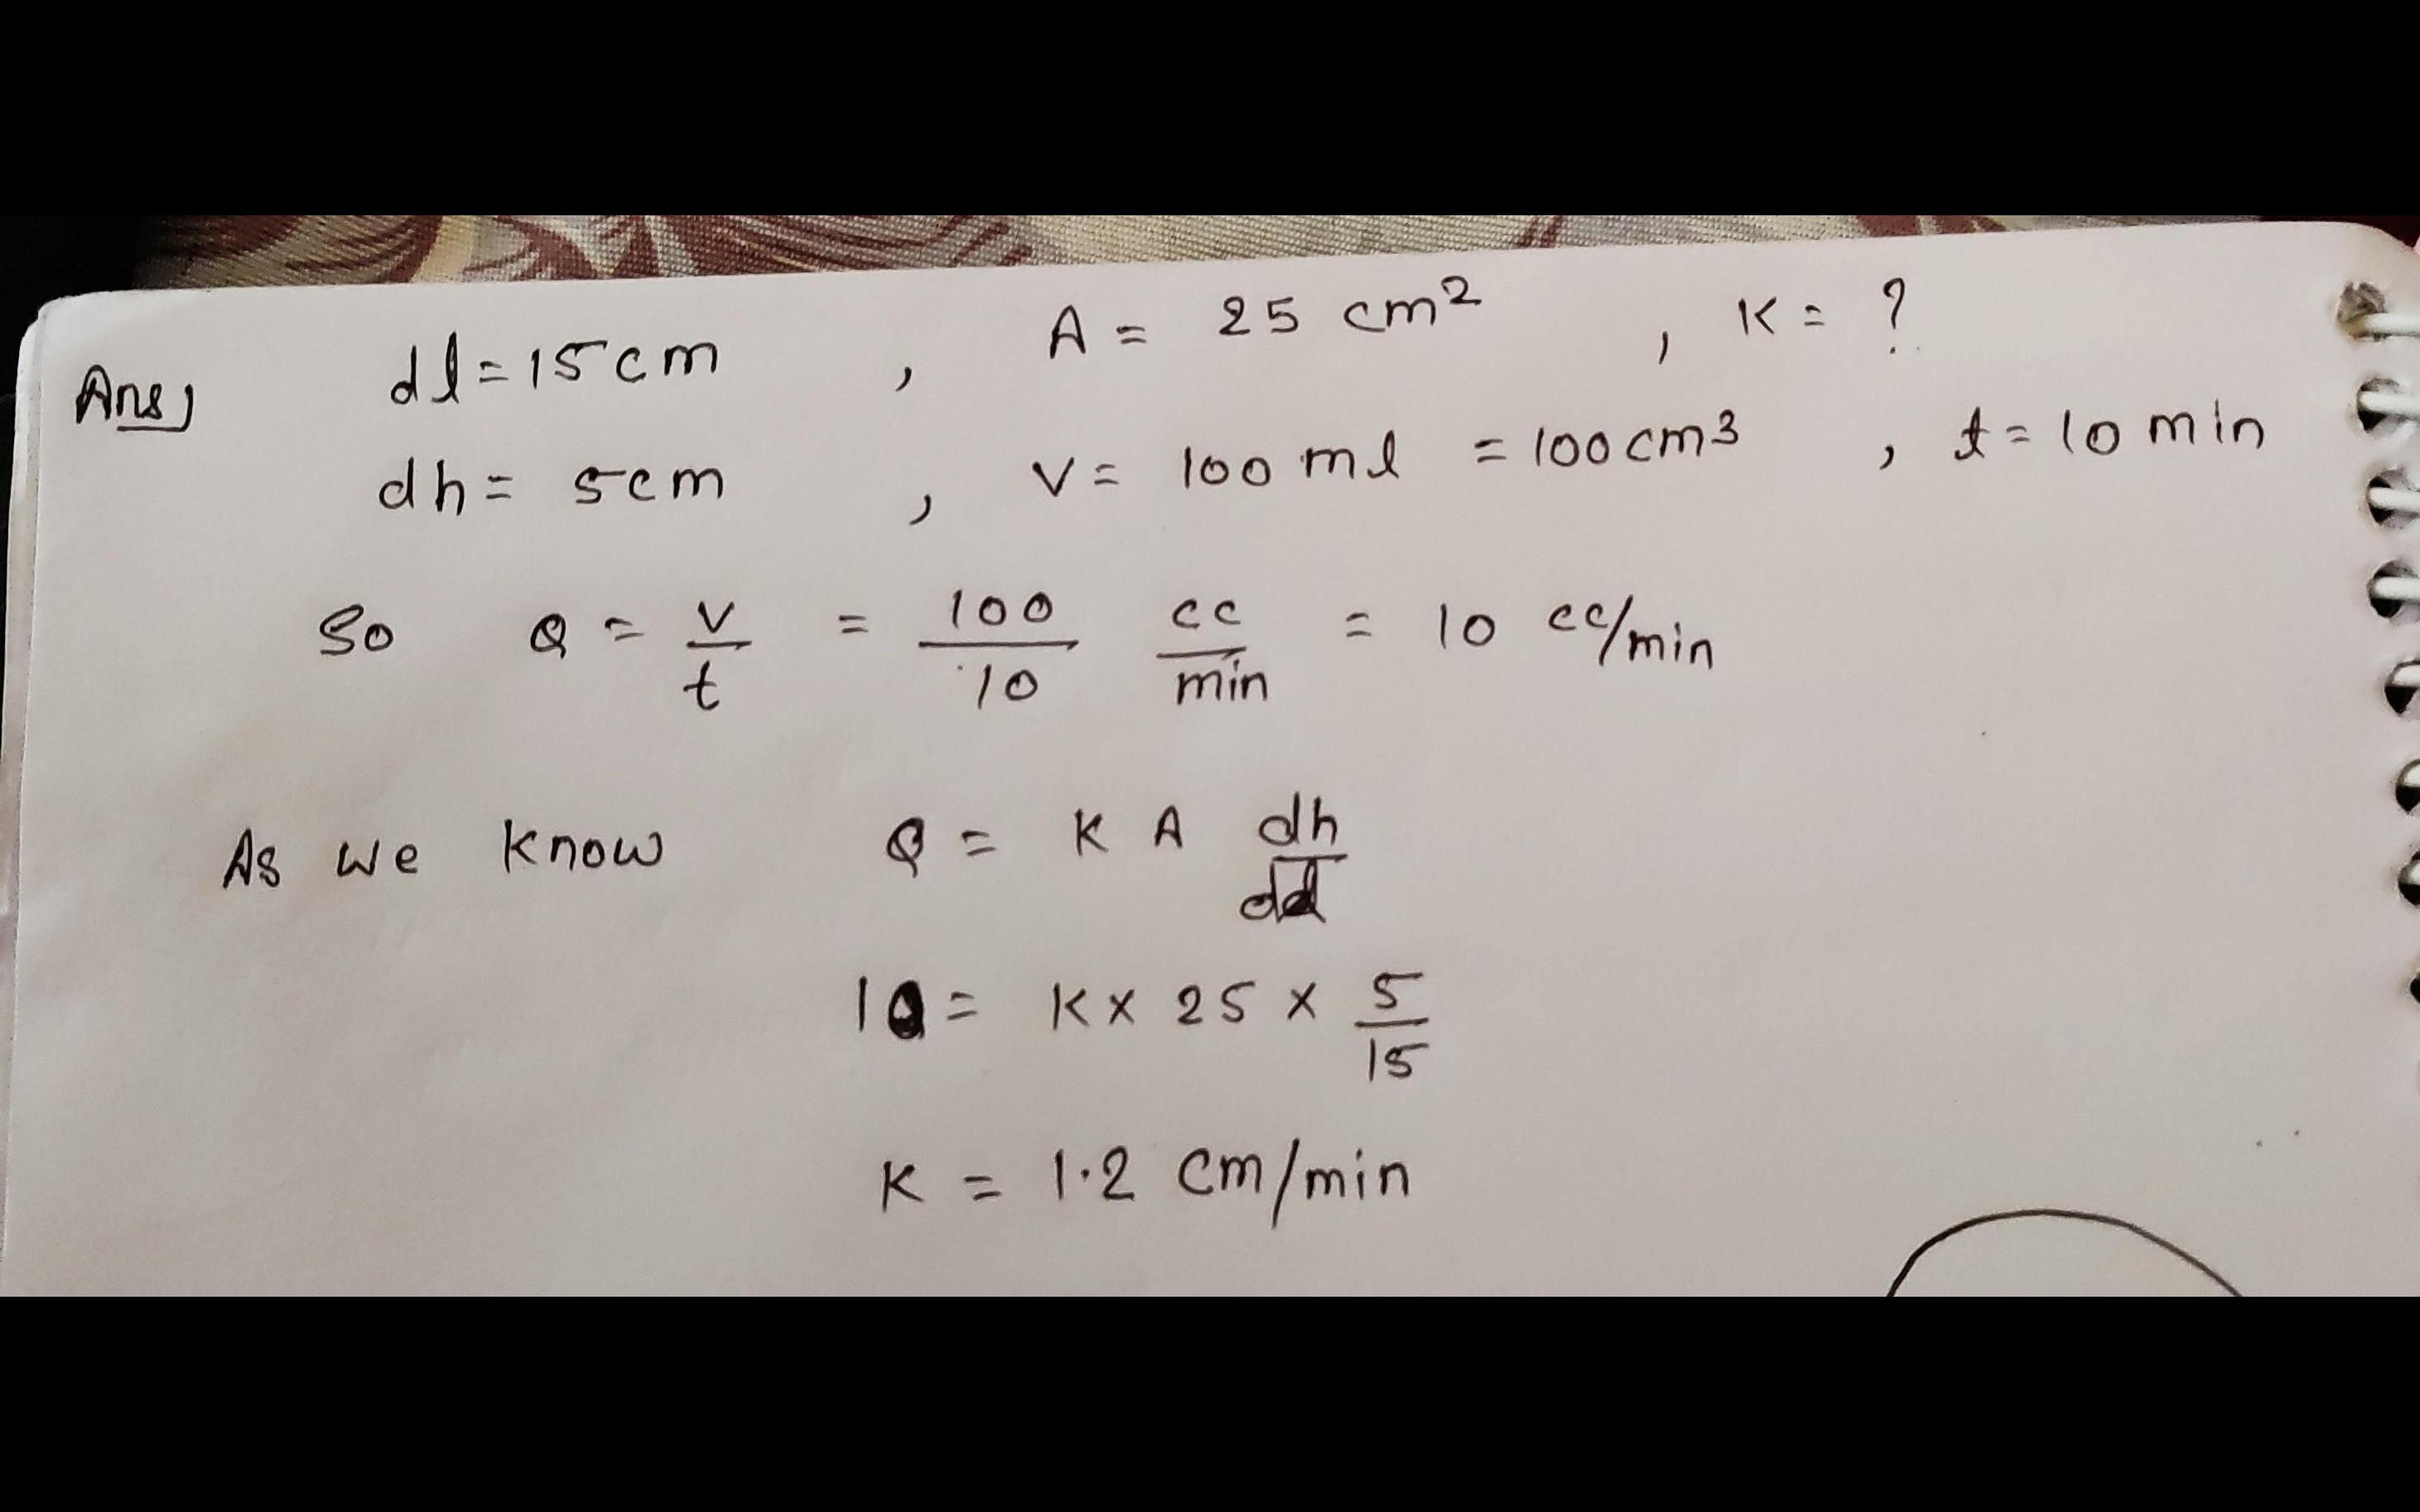 Ans, dl = 15 cm , A = 25 cm² , K = ?
dh = 5 cm , V = 100 ml = 100 cm3 , t = 10 min
So Q = V/t = 100/10 cc/min = 10 cc/min
As we know Q = K A dh/dl
10 = K x 25 x 5/15
K = 1.2 cm/min